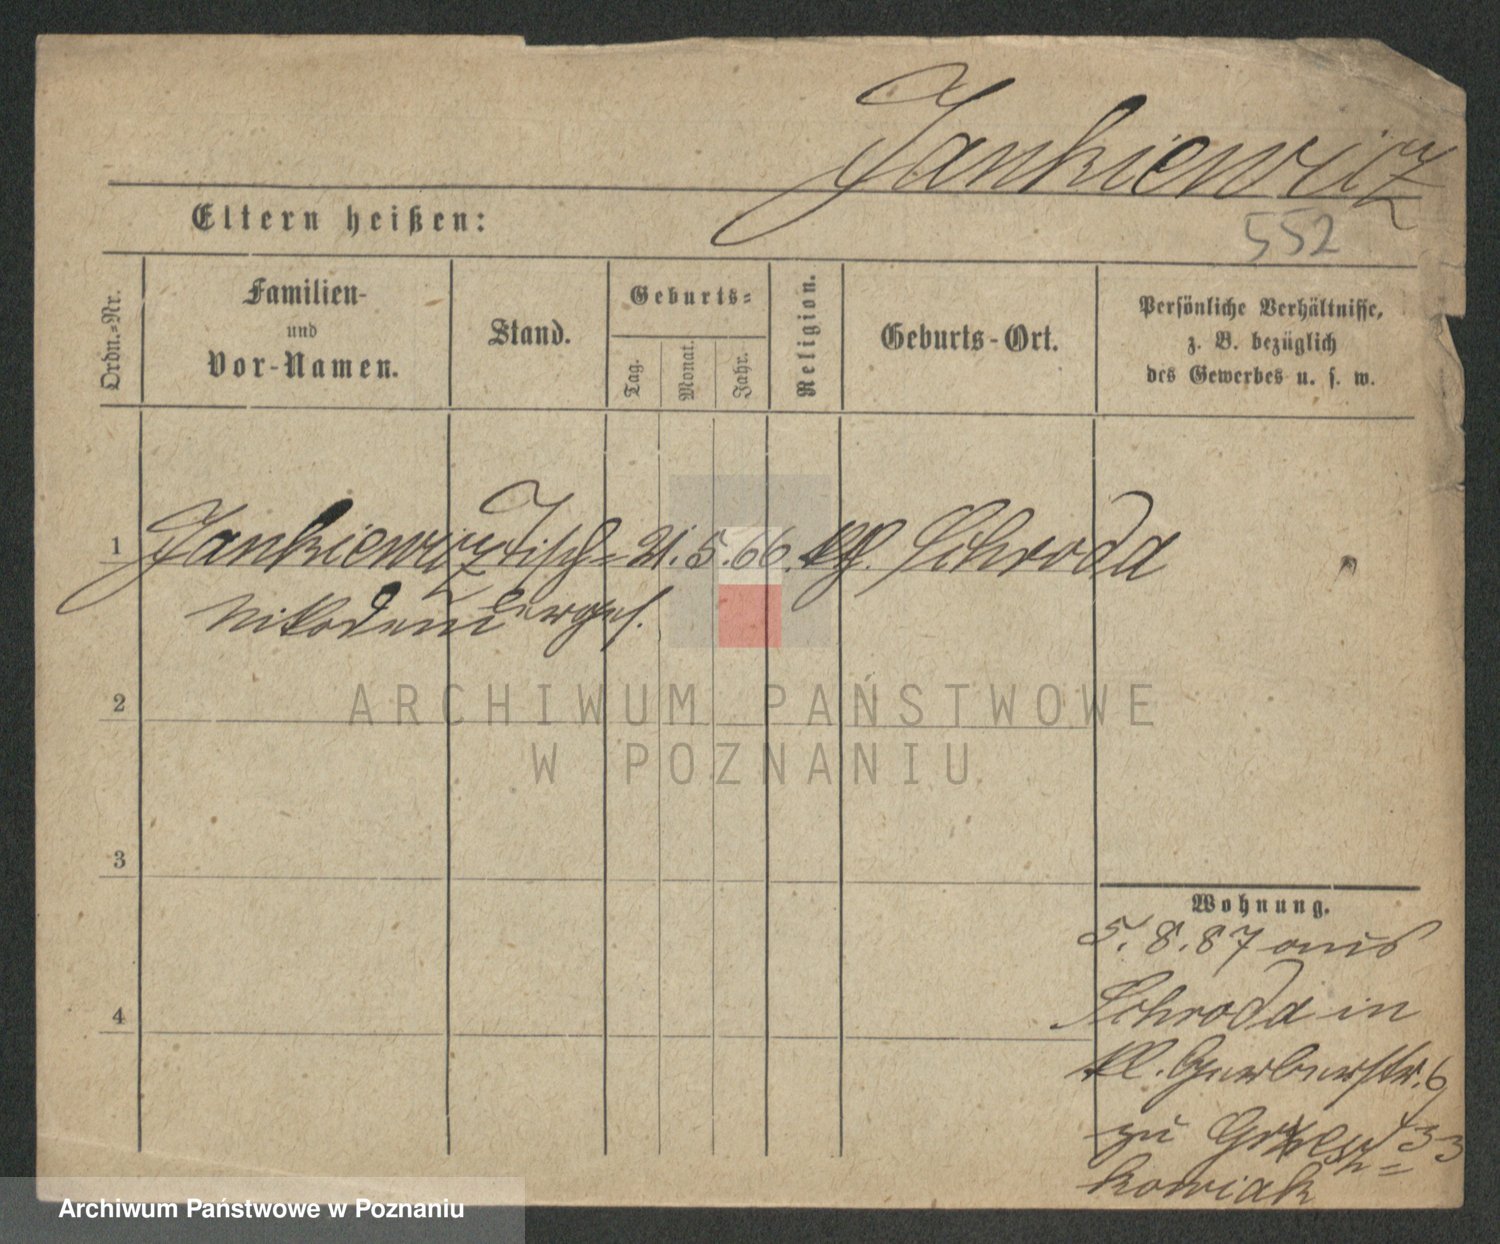 Jankiewicz
552
Eltern heißen:
Ordn.-Nr.
Familien-
und
Vor-Namen.
Stand.
Geburts-
Tag.
Monat.
Jahr.
Religion.
Geburts-Ort.
Persönliche Verhältnisse,
z. B. bezüglich
des Gewerbes u. s. w.
1 Jankiewicz Tisch- 21. 5. 66. kf. Schroda
Nikodem lerges.
2
ARCHIWUM PAŃSTWOWE
W POZNANIU
3
Wohnung.
5. 8. 87 aus
Schroda in
4
kl. Gerberstr. 6
zu 33
kowiak
Archiwum Państwowe w Poznaniu